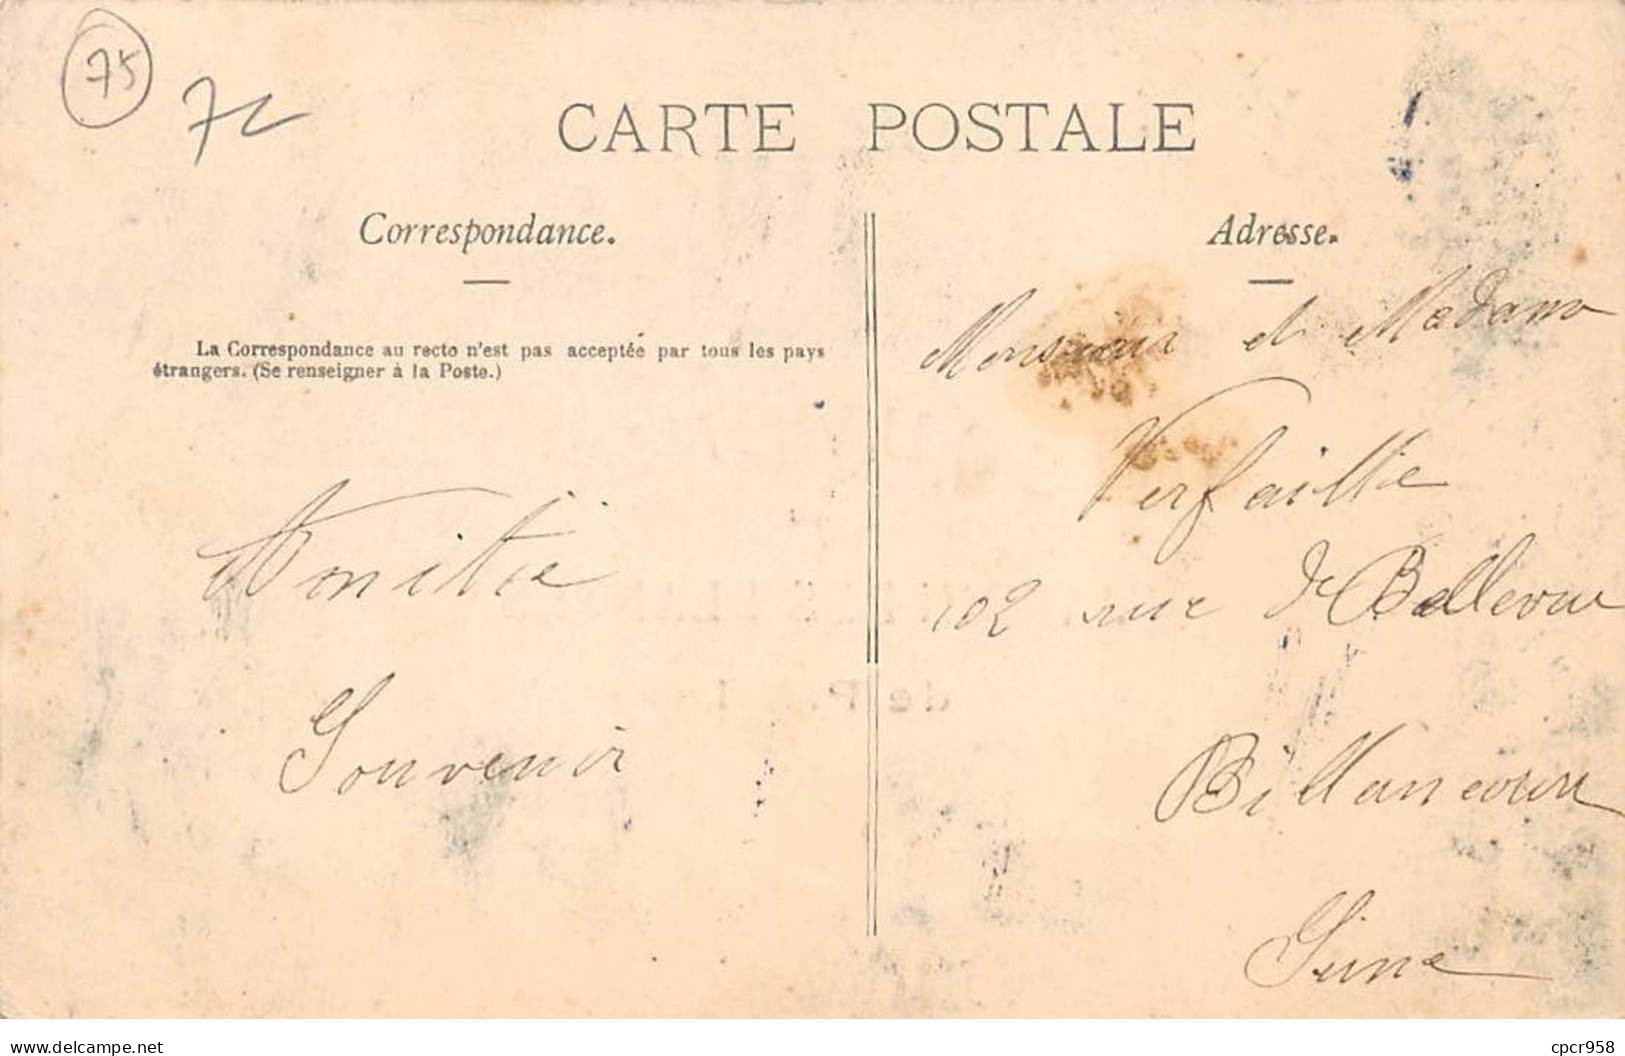 75
CARTE POSTALE
Correspondance.
La Correspondance au recto n'est pas acceptée par tous les pays
étrangers. (Se renseigner à la Poste.)
Amitié
Souvenir
Adresse.
Monsieur et Madame
Verfaillie
102 rue de Bellevue
Billancourt
Seine
www.delcampe.net
cpcr958